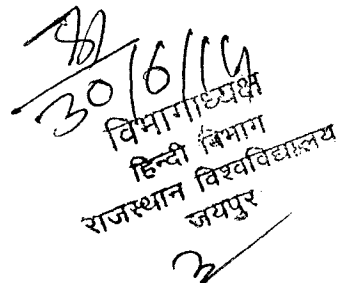 30/6/14
विभागाध्यक्ष
हिन्दी विभाग
राजस्थान विश्वविद्यालय
जयपुर